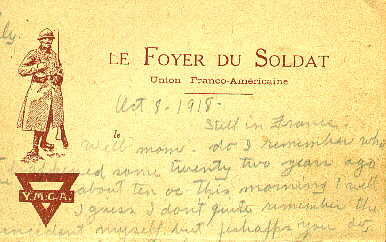 ly.
LE FOYER DU SOLDAT
Union Franco-Américaine
Oct 8 - 1918 -
Still in France.
le
Well mom - do I remember who
ed some twenty two years ago
about ten oc this morning! Well
Y.M.C.A.
I guess I don't quite remember the
incident myself but perhaps you do